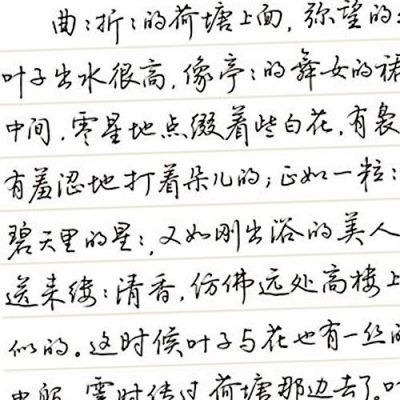 曲:折:的荷塘上面，弥望的:
叶子出水很高，像亭:的舞女的裙
中间，零星地点缀着些白花，有袅
有羞涩地打着朵儿的；正如一粒:
碧天里的星:，又如刚出浴的美人
送来缕:清香，仿佛远处高楼上
似的。这时候叶子与花也有一丝的
霎时传过荷塘那边去了。叶